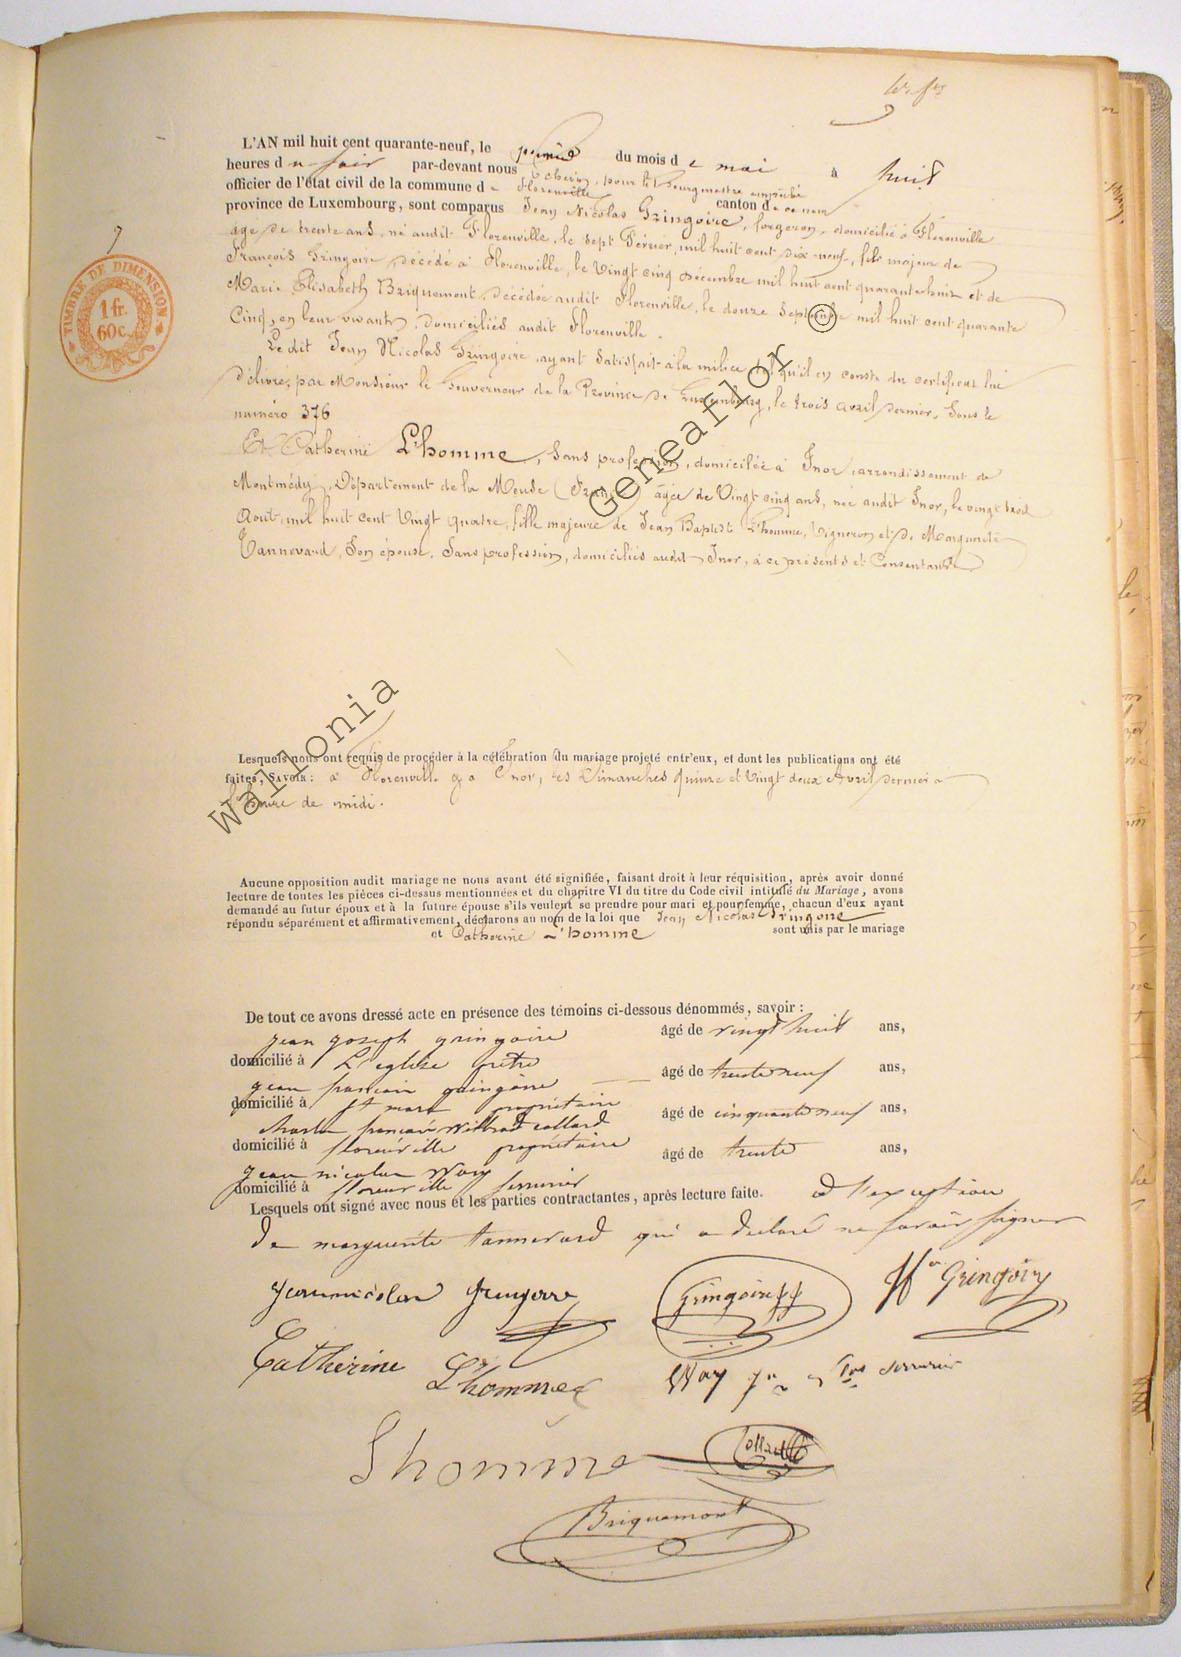 7
TIMBRE DE DIMENSION
1 fr.
60c.
L'AN mil huit cent quarante-neuf, le premier du mois de mai à huit
heures du soir par-devant nous Echevin, pour le Bourgmestre empêché
officier de l'état civil de la commune de Florenville canton de ce nom
province de Luxembourg, sont comparus Jean Nicolas Gringoire, forgeron, domicilié à Florenville
âgé de trente ans, né audit Florenville, le sept Février, mil huit cent dix neuf, fils majeur de
François Gringoire, décédé à Florenville, le Vingt cinq Décembre mil huit cent quarante huit et de
Marie Elisabeth Briquemont, décédée audit Florenville, le douze Septembre mil huit cent quarante
Cinq, en leur vivant, domiciliés audit Florenville.
Le dit Jean Nicolas Gringoire, ayant satisfait à la milice tel qu'il en conste du certificat lui
délivré, par Monsieur le Gouverneur de la Province de Luxembourg, le trois avril dernier, Sous le
numéro 376
Et Catherine L'homme, Sans profession, domiciliée à Inor, arrondissement de
Montmédy, Département de la Meuse (France) âgée de Vingt cinq ans, née audit Inor, le vingt trois
Aout, mil huit cent Vingt quatre, fille majeure de Jean Baptiste L'homme, Vigneron et de Marguerite
Tannevard, Son épouse, Sans profession, domiciliés audit Inor, à ce présents et Consentants
Lesquels nous ont requis de procéder à la célébration du mariage projeté entr'eux, et dont les publications ont été
faites, SAVOIR : à Florenville & à Inor, les Dimanches quinze et Vingt deux Avril dernier à
l'heure de midi.
Aucune opposition audit mariage ne nous ayant été signifiée, faisant droit à leur réquisition, après avoir donné
lecture de toutes les pièces ci-dessus mentionnées et du chapitre VI du titre du Code civil intitulé du Mariage, avons
demandé au futur époux et à la future épouse s'ils veulent se prendre pour mari et pour femme, chacun d'eux ayant
répondu séparément et affirmativement, déclarons au nom de la loi que Jean Nicolas Gringoire
et Catherine L'homme sont unis par le mariage
De tout ce avons dressé acte en présence des témoins ci-dessous dénommés, savoir :
jean joseph gringoire âgé de vingt huit ans,
domicilié à L'eglise prêtre
jean francois gringoire âgé de trente neuf ans,
domicilié à st mard propriétaire
charles francois Willbrod collard âgé de cinquante neuf ans,
domicilié à florenville propriétaire
jean nicolas Way âgé de trente ans,
domicilié à florenville serrurier
Lesquels ont signé avec nous et les parties contractantes, après lecture faite. a l'exception
de marguerite tannevard qui a déclaré ne savoir signer
Jean nicolas Gringoire
Gringoire
Gringoire
Catherine L'homme
Way serrurier
Lhomme
Collard
Briquemont
Wallonia Geneaflor ©